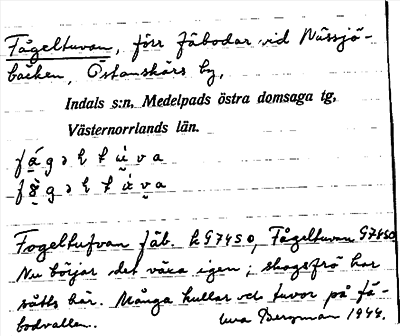 Fågeltuvan, förr fäbodar vid Nässjö-
bäcken, Östanskärs by,
Indals s:n, Medelpads östra domsaga tg,
Västernorrlands län.
Fogeltufvan fäb. h G7450, Fågeltuvan G7450
Nu börjar det växa igen; skogsfrö har
såtts här. Många kullar och tuvor på fä-
bodvallen. Bergman 1944.